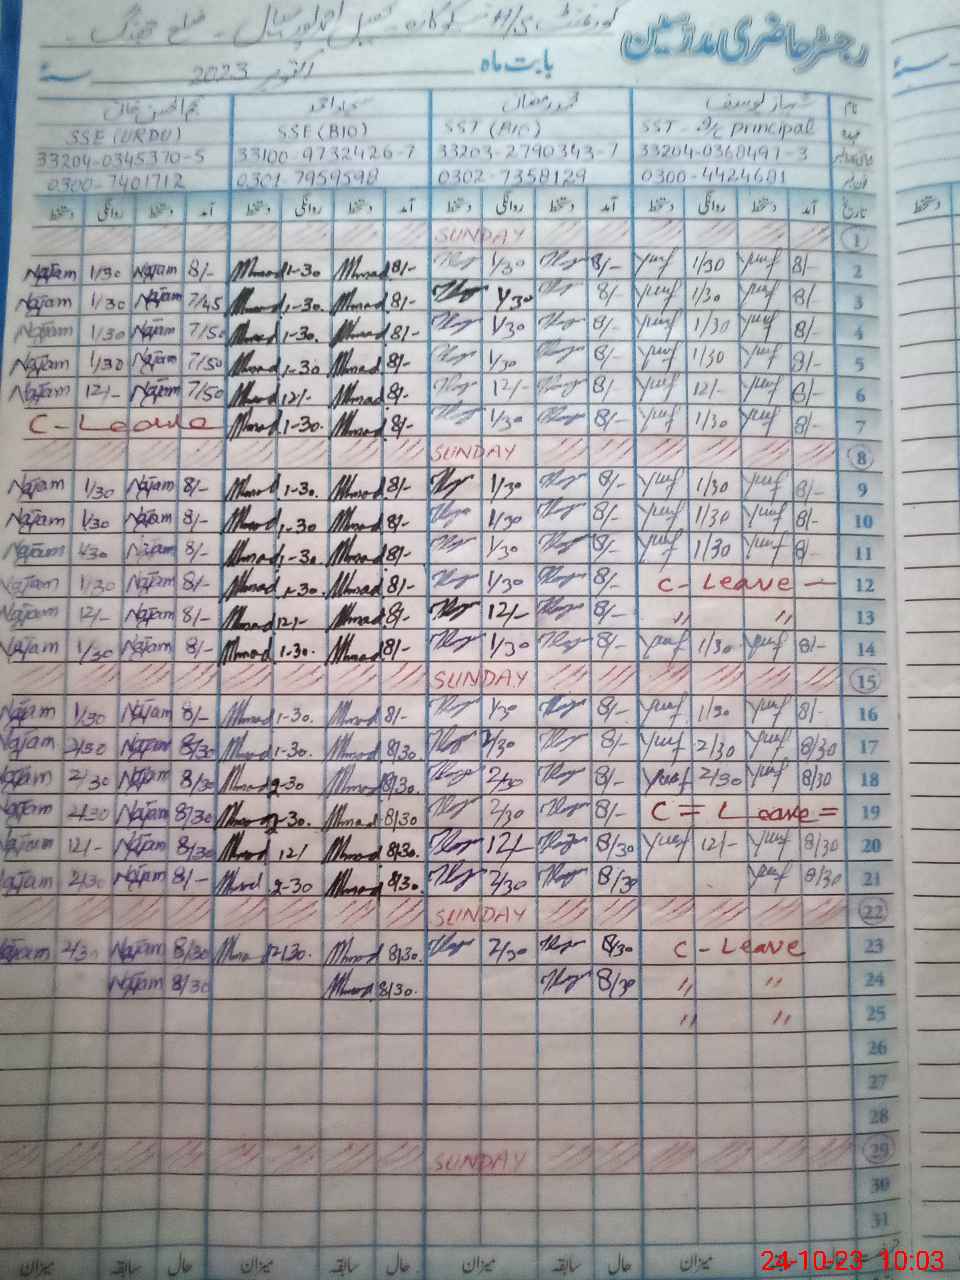 رجسٹر حاضری مدارسین
بابت ماہ اکتوبر 2023 سنہ
نام شہباز یوسف محمد رمضان سجاد احمد نجم الحسن خان
عہدہ SST - I/c principal SST (BIO) SSE (BIO) SSE (URDU)
33204-0368491-3 33203-2790343-7 33100-9732426-7 33204-0345370-5
0300-4424681 0302-7358129 0301-7959598 0300-7401712
تاریخ آمد دستخط روانگی دستخط آمد دستخط روانگی دستخط آمد دستخط روانگی دستخط آمد دستخط روانگی دستخط
SUNDAY 1
Najam 1/30 Najam 8/- Ahmad 1-30 Ahmad 8/- 1/30 8/- Yusuf 1/30 Yusuf 8/- 2
Najam 1/30 Najam 7/45 Ahmad 1-30. Ahmad 8/- 1/30 8/- Yusuf 1/30 Yusuf 8/- 3
Najam 1/30 Najam 7/50 Ahmad 1-30. Ahmad 8/- 1/30 8/- Yusuf 1/30 Yusuf 8/- 4
Najam 1/30 Najam 7/50 Ahmad 1-30 Ahmad 8/- 1/30 8/- Yusuf 1/30 Yusuf 8/- 5
Najam 12/- Najam 7/50 Ahmad 12/- Ahmad 8/- 12/- 8/- Yusuf 12/- Yusuf 8/- 6
C - Leave Ahmad 1-30. Ahmad 8/- 1/30 8/- Yusuf 1/30 Yusuf 8/- 7
SUNDAY 8
Najam 1/30 Najam 8/- Ahmad 1-30. Ahmad 8/- 1/30 8/- Yusuf 1/30 Yusuf 8/- 9
Najam 1/30 Najam 8/- Ahmad 1-30 Ahmad 8/- 1/30 8/- Yusuf 1/30 Yusuf 8/- 10
Najam 1/30 Najam 8/- Ahmad 1-30. Ahmad 8/- 1/30 8/- Yusuf 1/30 Yusuf 8/- 11
Najam 1/30 Najam 8/- Ahmad 1-30 Ahmad 8/- 1/30 8/- C - Leave - 12
Najam 12/- Najam 8/- Ahmad 12/- Ahmad 8/- 12/- 8/- " " 13
Najam 1/30 Najam 8/- Ahmad 1-30. Ahmad 8/- 1/30 8/- Yusuf 1/30 Yusuf 8/- 14
SUNDAY 15
Najam 1/30 Najam 8/- Ahmad 1-30. Ahmad 8/- 1/30 8/- Yusuf 1/30 Yusuf 8/- 16
Najam 2/30 Najam 8/30 Ahmad 1-30. Ahmad 8/30 2/30 8/- Yusuf 2/30 Yusuf 8/30 17
Najam 2/30 Najam 8/30 Ahmad 2-30 Ahmad 8/30. 2/30 8/- Yusuf 2/30 Yusuf 8/30 18
Najam 2/30 Najam 8/30 Ahmad 2-30. Ahmad 8/30 2/30 8/- C = Leave = 19
Najam 12/- Najam 8/30 Ahmad 12/ Ahmad 8/30. 12/- 8/30 Yusuf 12/- Yusuf 8/30 20
Najam 2/30 Najam 8/- Ahmad 2-30 Ahmad 8/30. 2/30 8/30 Yusuf 8/30 21
SUNDAY 22
Najam 2/30 Najam 8/30 Ahmad 12/30. Ahmad 8/30. 2/30 8/30 C - Leave 23
Najam 8/30 Ahmad 8/30. 8/30 " " 24
" " 25
26
27
28
SUNDAY 29
30
31
حال سابقہ میزان حال سابقہ میزان حال سابقہ میزان
24-10-23 10:03